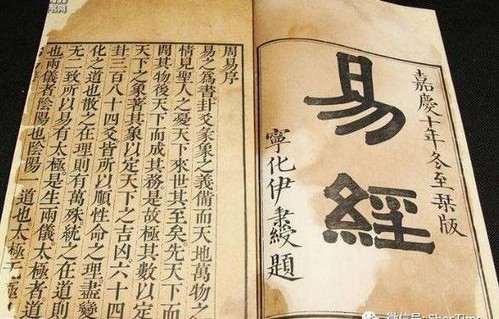 嘉慶十年冬至栞版
易經
寧化伊秉綬題
周易序
易之爲書卦爻彖象之義備而天地萬物之
情見聖人之憂天下來世其至矣先天下而
開其物後天下而成其務是故極其數以定
天下之象著其象以定天下之吉凶六十四
卦三百八十四爻皆所以順性命之理盡變
化之道也散之在理則有萬殊統之在道則
無二致所以易有太極是生兩儀太極者道
也兩儀者陰陽也陰陽一道也太極無極
微信号: SherTime